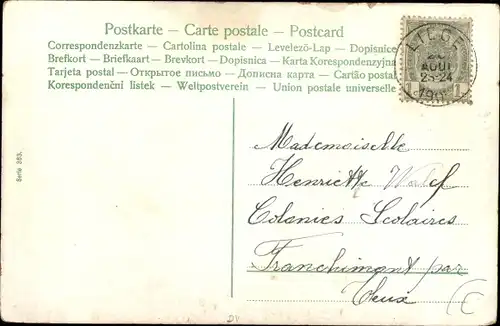 Postkarte – Carte postale – Postcard
Correspondenzkarte – Cartolina postale – Levelezö-Lap – Dopisnice
Brefkort – Briefkaart – Brevkort – Dopisnica – Karta Korespondenzyjna
Tarjeta postal – Открытое письмо – Дописна карта – Cartão postal
Korespondenční listek – Weltpostverein – Union postale universelle
AOUT
23-24
1 1
Serie 383.
Mademoiselle
Henriette
Colonies Scolaires
Franchimont par
Theux